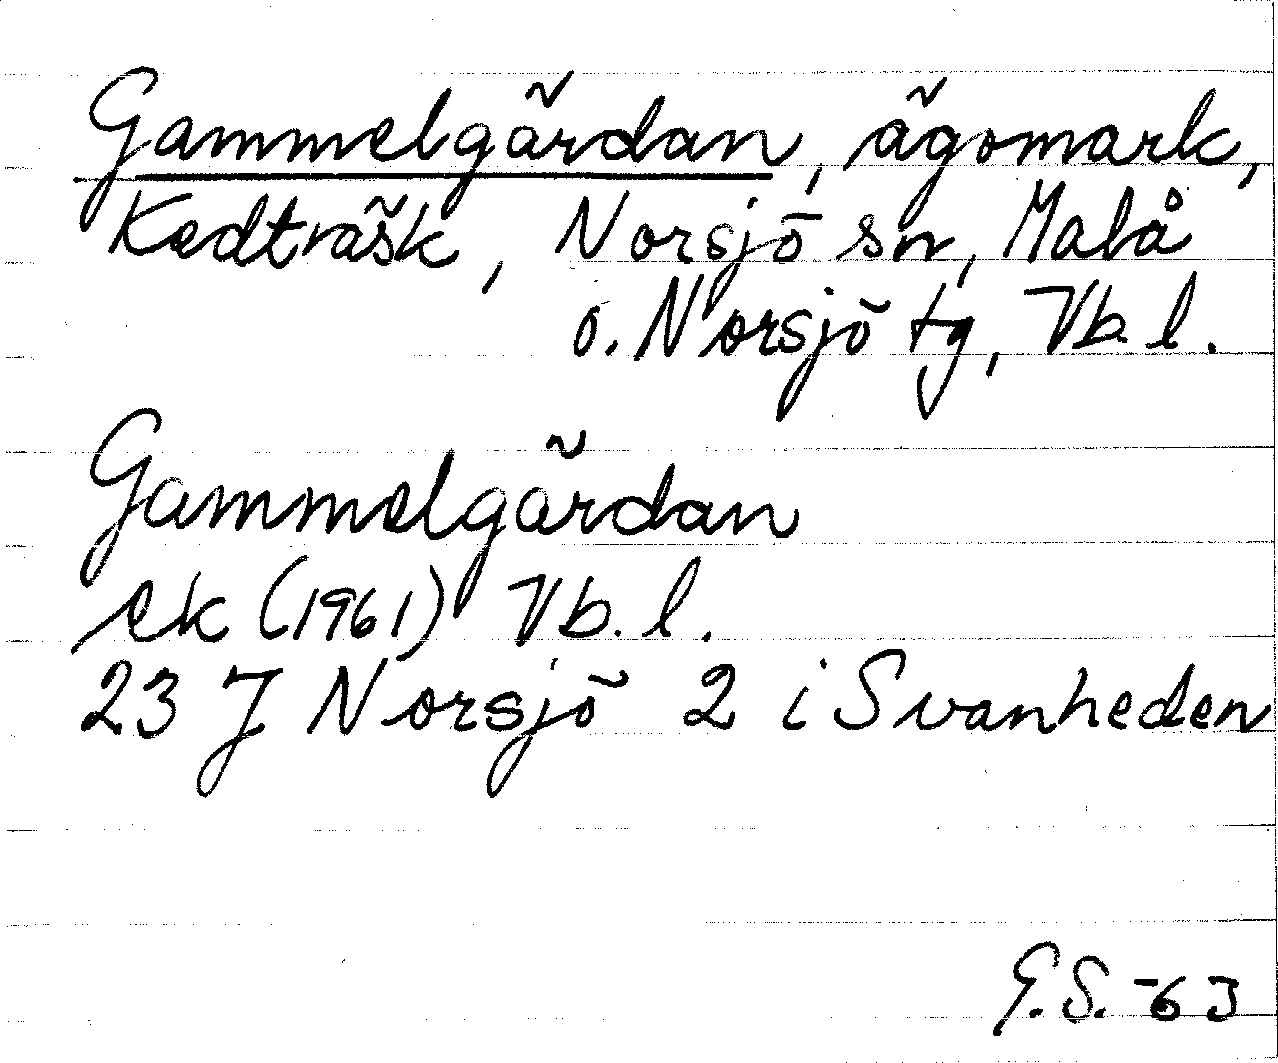 Gammelgärdan, ägomark,
Kedträsk, Norsjö sn, Malå
o. Norsjö tg, Vb. l.
Gammelgärdan
ek (1961) Vb. l.
23 J Norsjö 2 i Svanheden
G.S. -63